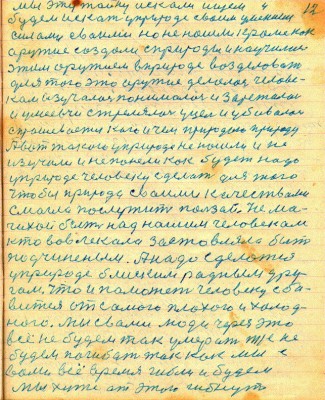 12
мы эту тайну искали ищем и
будем искат у природе своим умением
силами своими но не нашли кроме как
оружие создали с природы и научились
этим оружием в природе воздействоват
для того это оружие делалося челове-
ком изучалося понималося и
и умеючи стрелялося уцел и убивалося
спрашивается кого и чем природою природу
А вот такого у природе не нашли и не
изучили и не поняли как будет надо
у природе человеку сделат для того
чтобы природа своими качествами
смогла послужит ползой. Не ма-
чихой быть над нашим человеком
кто вовлекала заставляла быт
подчиненым. А надо сделатся
у природе близким родным дру-
гом, что и поможет человеку изба-
вится от самого плохого и холод-
ного. Мы с вами люди через это
всё не будем так умират и не
будем погибат так как мы с
вами всё время гибли и будем
мы жит от этого гибнут